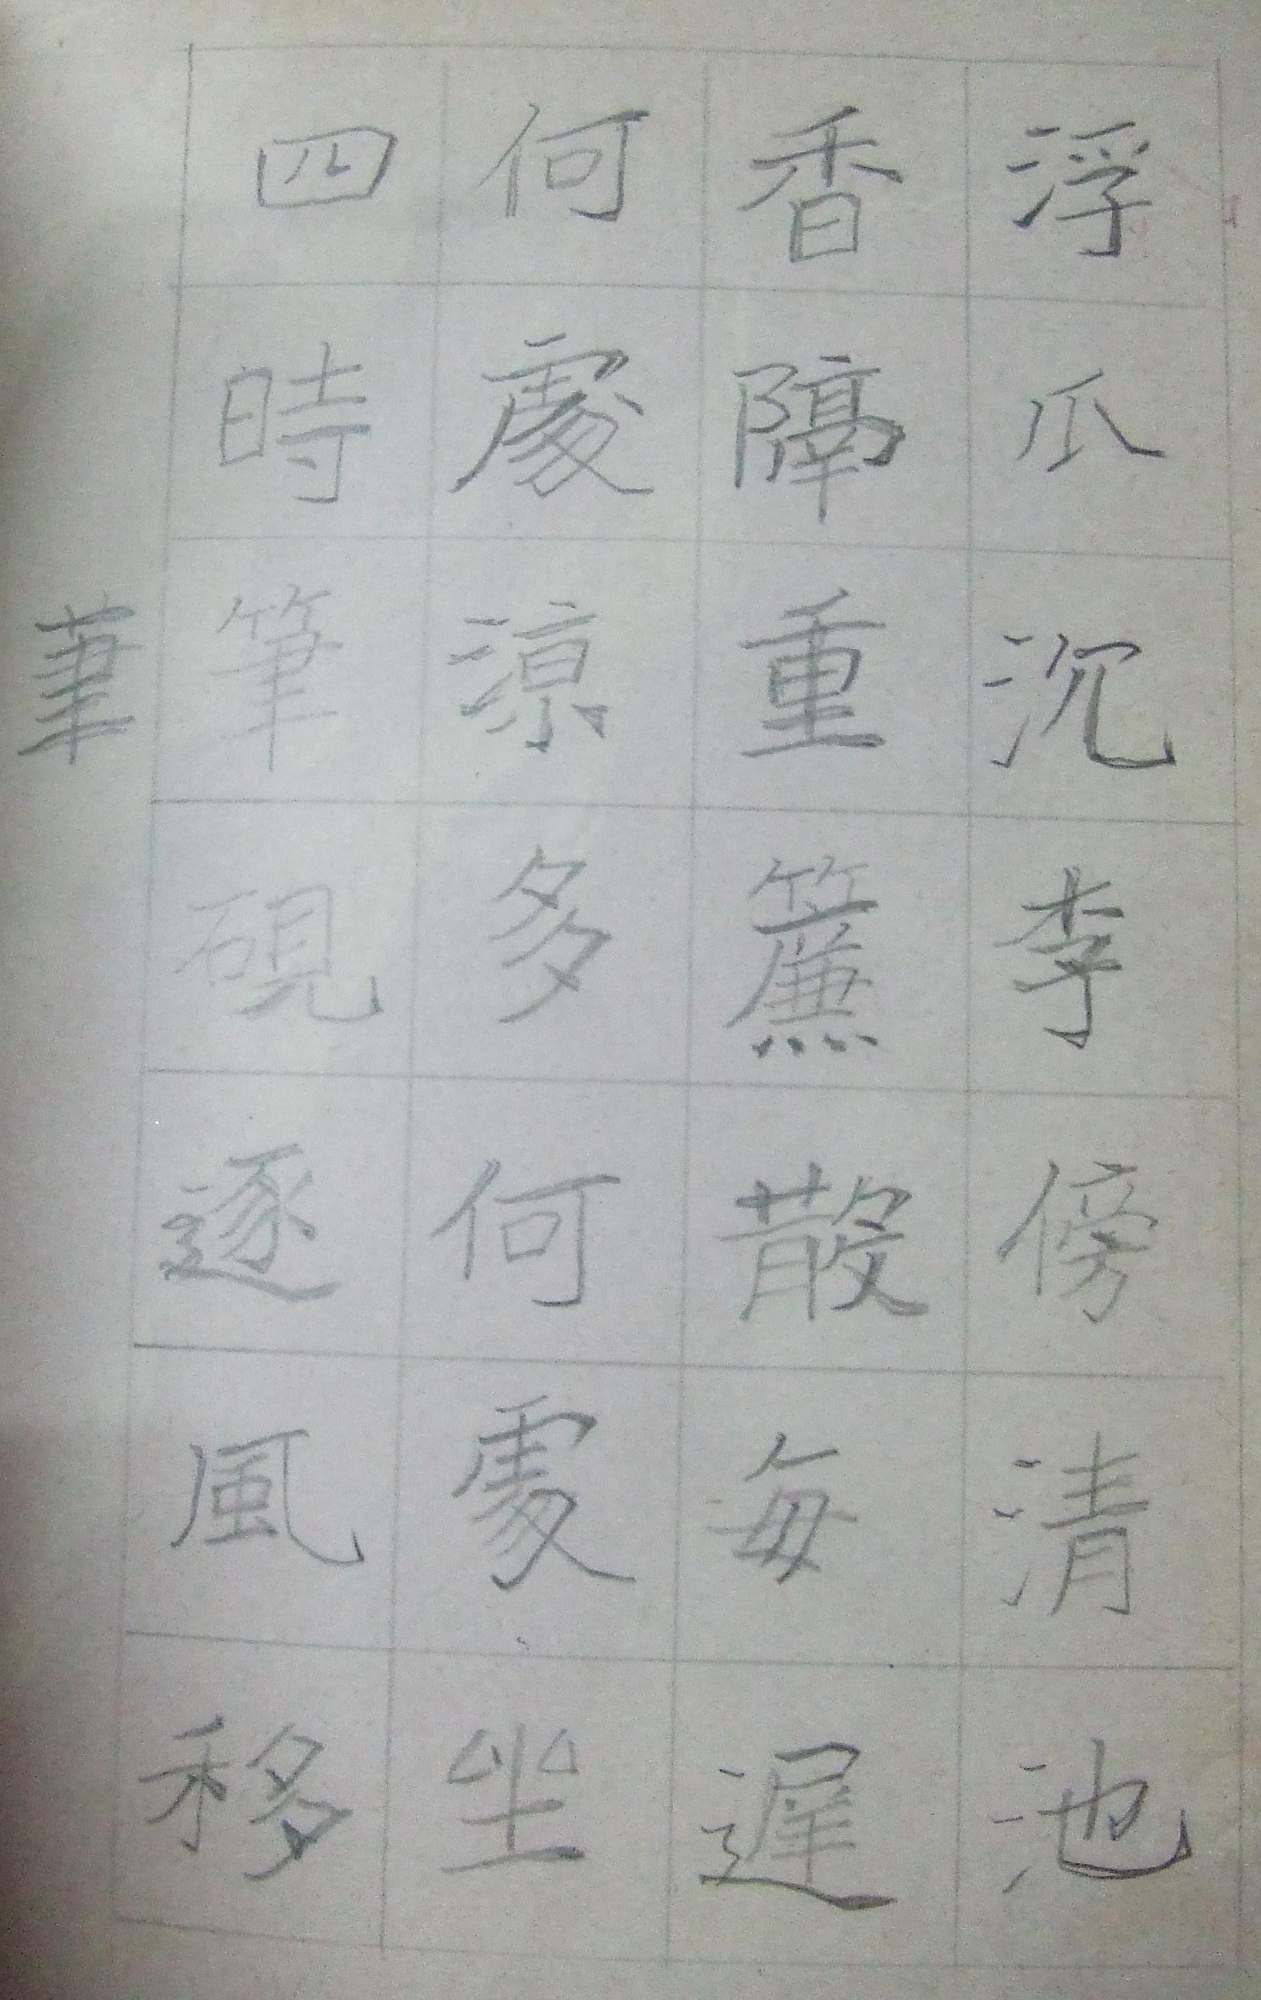 浮瓜沉李傍清池
香隔重簾散每遲
何處涼多何處坐
四時筆硯逐風移
筆